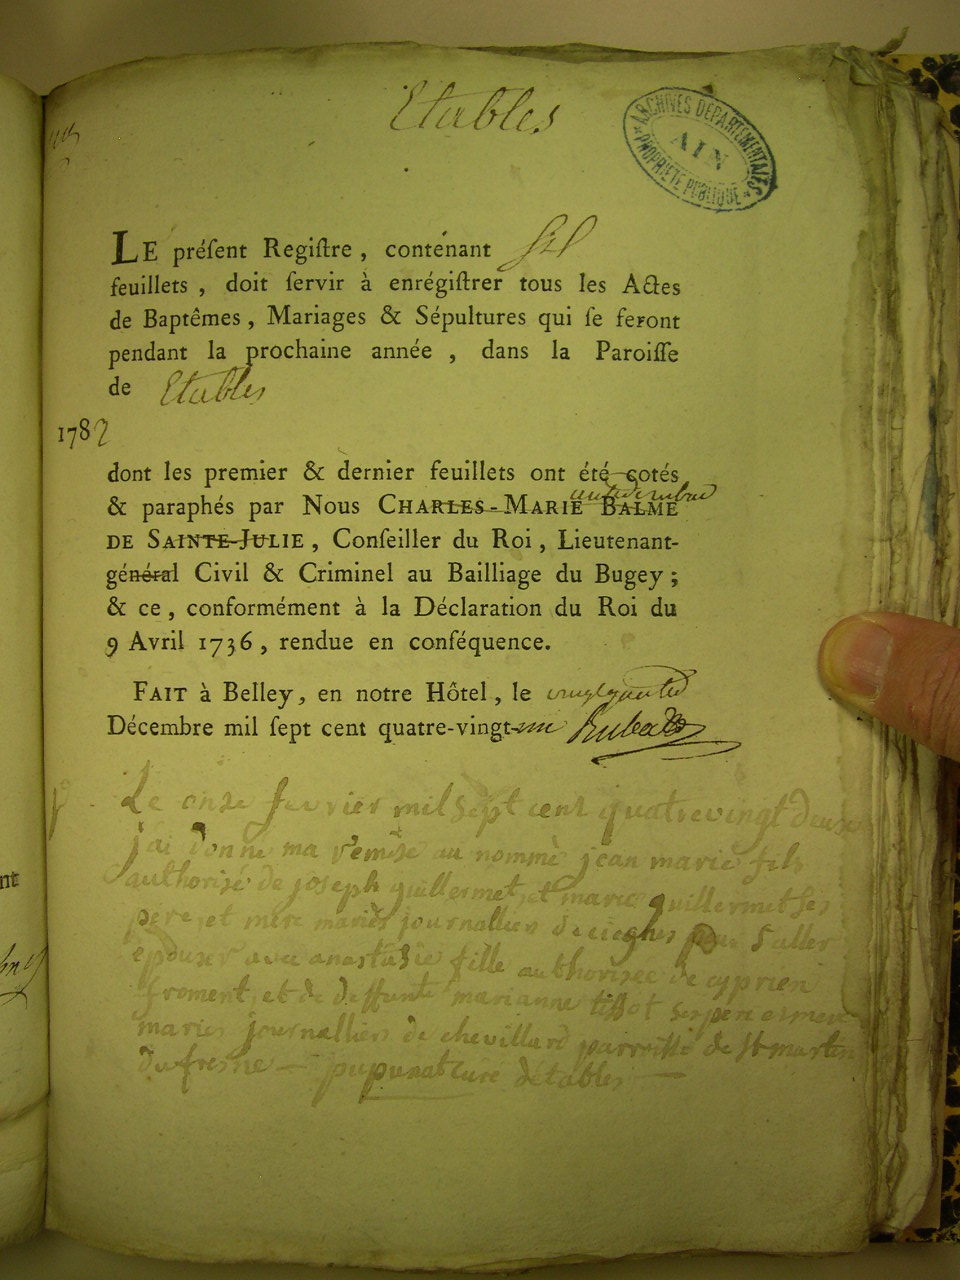 Etables
ARCHIVES DEPARTEMENTALES
AIN
PROPRIETE PUBLIQUE
LE préſent Regiſtre, contenant six
feuillets, doit ſervir à enrégiſtrer tous les Actes
de Baptêmes, Mariages & Sépultures qui ſe feront
pendant la prochaine année, dans la Paroiſſe
de Etables
1782
dont les premier & dernier feuillets ont été cotés
& paraphés par Nous CHARLES-MARIE BALME
DE SAINTE-JULIE, Conſeiller du Roi, Lieutenant-
général Civil & Criminel au Bailliage du Bugey;
& ce, conformément à la Déclaration du Roi du
9 Avril 1736, rendue en conféquence.
FAIT à Belley, en notre Hôtel, le
Décembre mil ſept cent quatre-vingt-un
Le onze fevrier mil sept cent quatrevingt deux
j'ai donné ma remise au nommé jean marie fils
authorisé de joseph guillermet, et marie guillermet ses
pere, et mere mariés journalliers pour s'aller
epouser avec anastasie fille authorisée de cyprien
froment, et de deffunte marianne tissot ses pere et mere
mariés journalliers de chevillard parroisse de st martin
du fresne — curé detables —